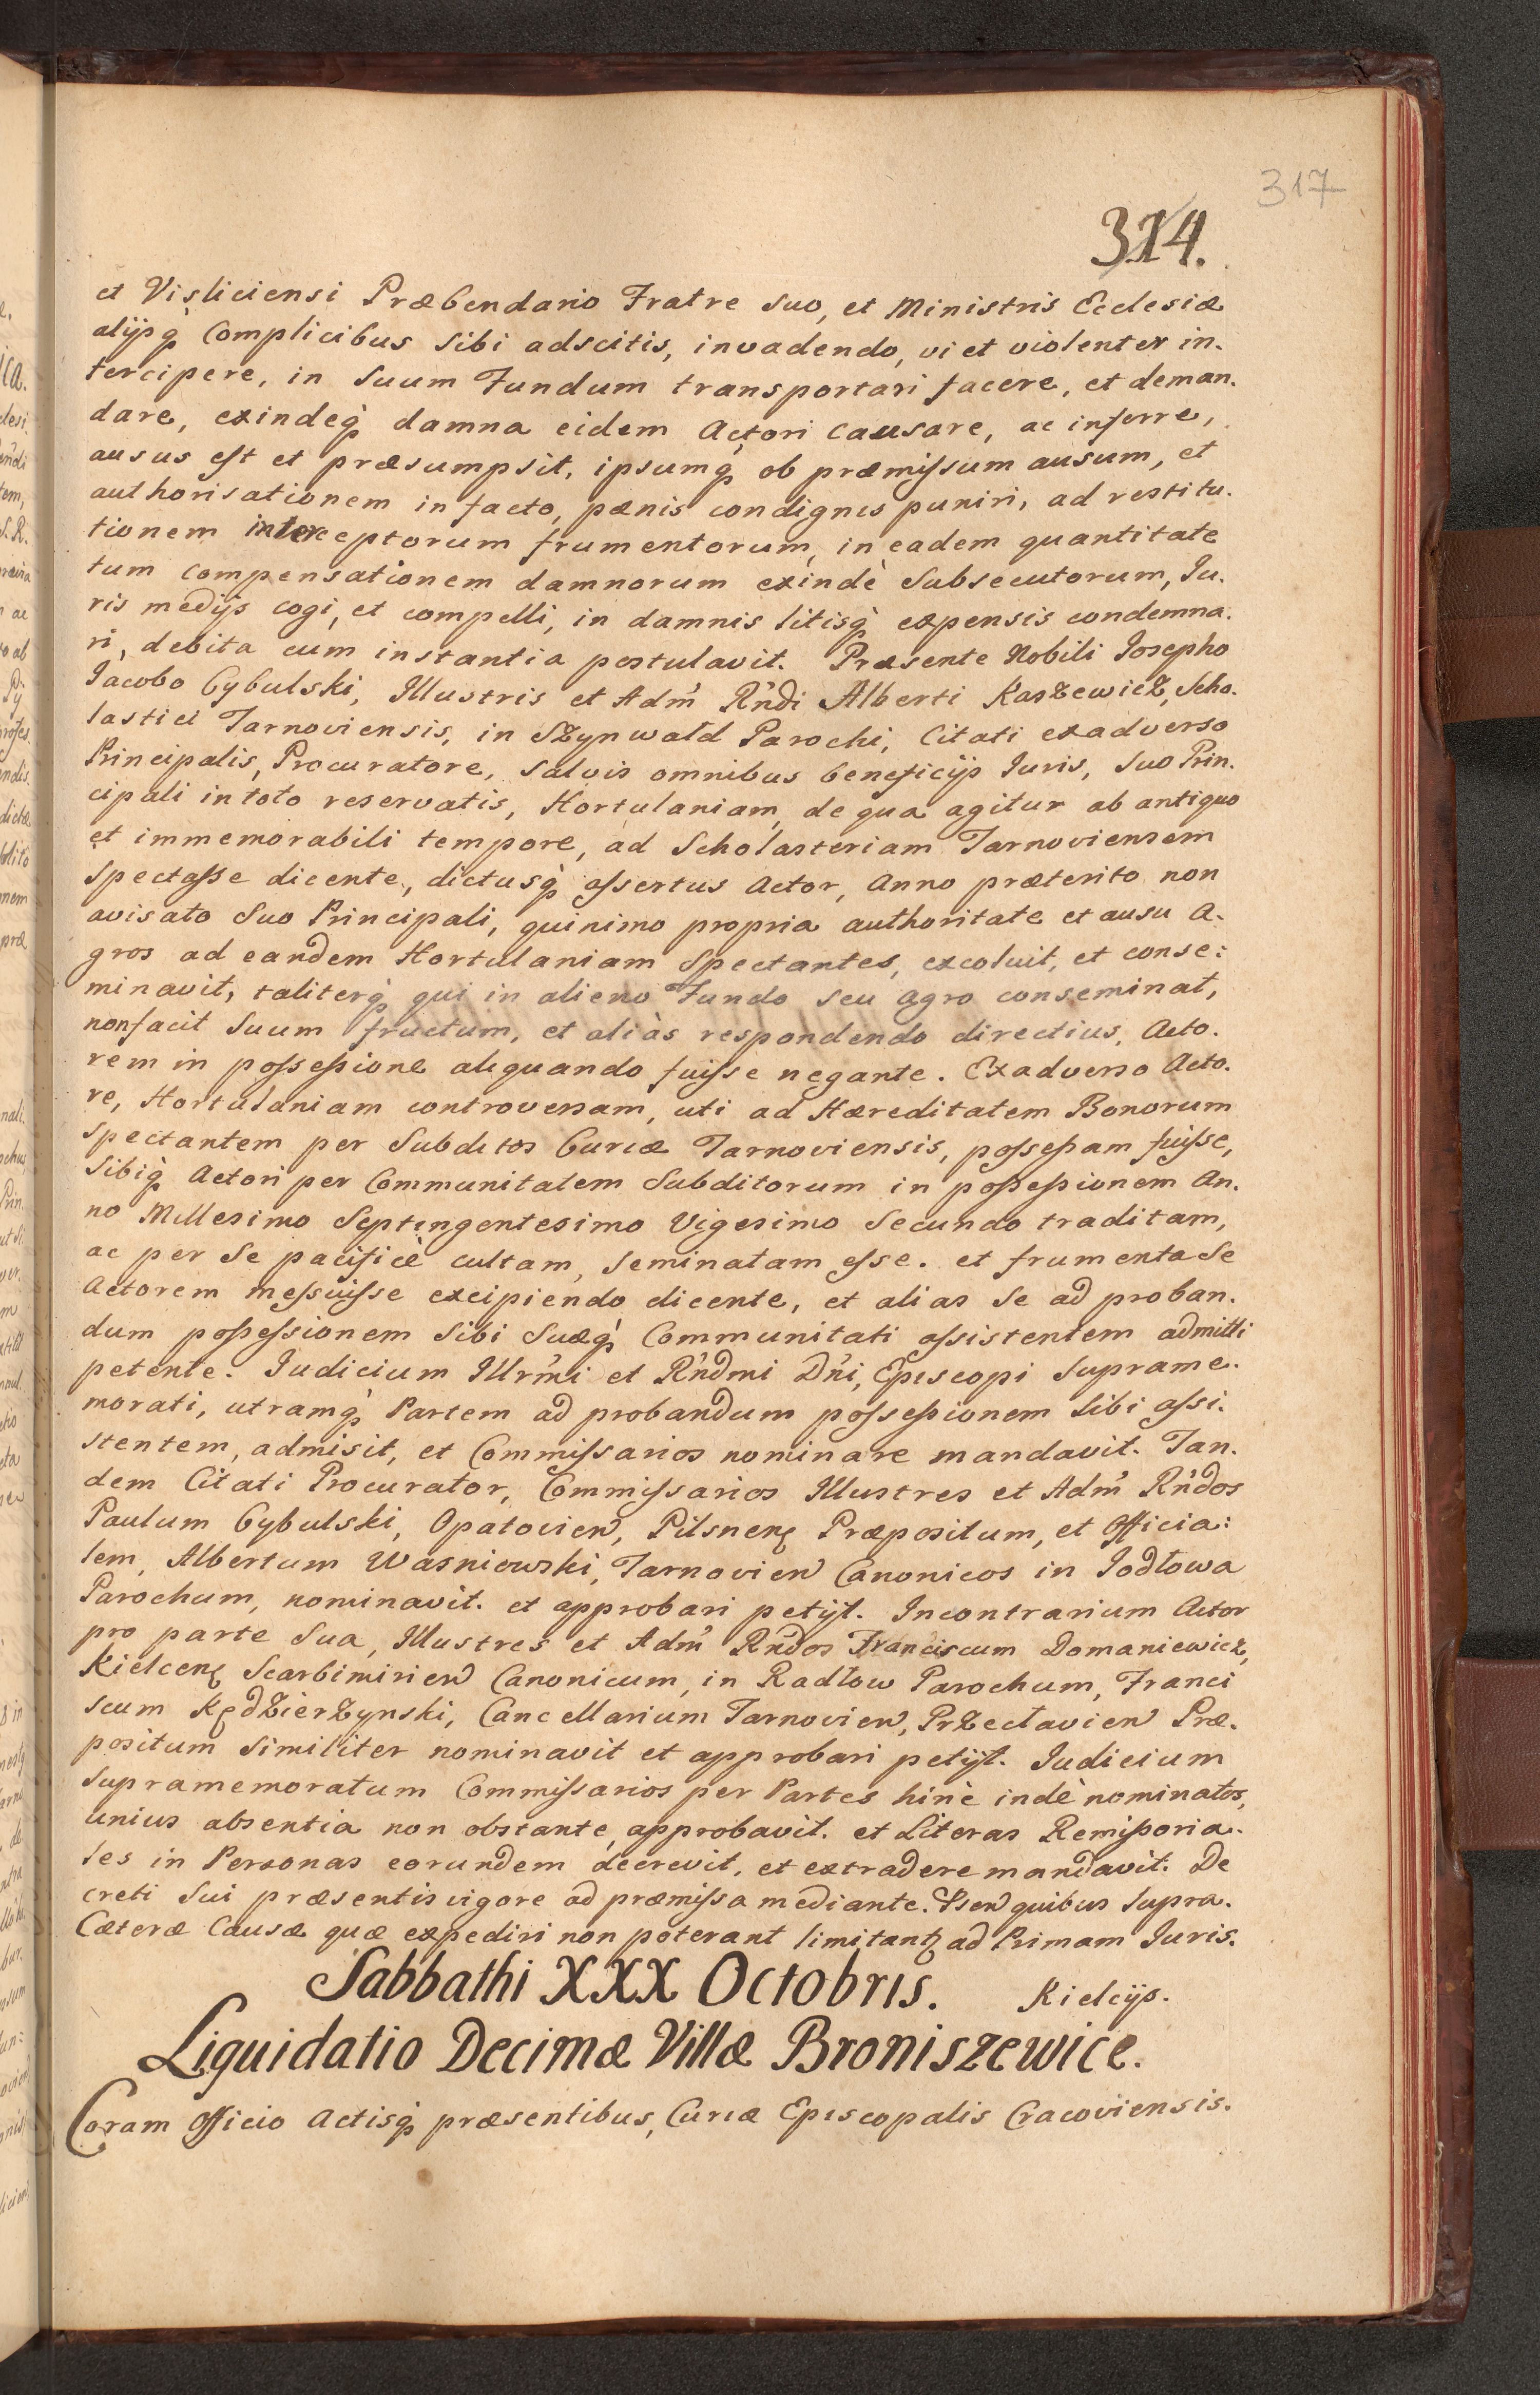 317
314.
et Visliciensi Præbendario Fratre suo, et Ministris Ecclesiæ
alijsq́ Complicibus sibi adscitis, invadendo, vi et violenter in-
tercipere, in suum Fundum transportari facere, et deman-
dare, exindeq́ damna eidem Actori causare, ac inferre,
ausus est et præsumpsit, ipsumq́ ob præmissum ausum, et
authorisationem in facto, pænis condignis puniri, ad restitu-
tionem interceptorum frumentorum, in eadem quantitate
tum compensationem damnorum exindè subsecutorum, Iu-
ris medijs cogi, et compelli, in damnis litisq́ expensis condemna-
ri, debita cum instantia postulavit. Præsente Nobili Iosepho
Iacobo Cybulski, Illustris et Adm̃ Rñdi Alberti Kaszewicz, Scho-
lastici Tarnoviensis, in Szynwałd Parochi, Citati exadverso
Principalis, Procuratore, salvis omnibus beneficijs Iuris, suo Prin-
cipali in toto reservatis, Hortulaniam, de qua agitur ab antiquo
et immemorabili tempore, ad Scholasteriam Tarnoviensem
spectasse dicente, dictusq́ assertus Actor, Anno præterito non
avisato suo Principali, quinimo propria authoritate et ausu A-
gros ad eandem Hortulaniam spectantes, excoluit, et conse:
minavit, taliterq́ qui in alieno Fundo seu agro conseminat,
non facit suum fructum, et aliàs respondendo directius, Acto-
rem in possessione aliquando fuisse negante. Exadverso Acto-
re, Hortulaniam controversam, uti ad Hæreditatem Bonorum
spectantem per Subditos Curiæ Tarnoviensis, possessam fuisse,
sibiq́ Actori per Communitatem Subditorum in possessionem An-
no Millesimo Septingentesimo Vigesimo Secundo traditam,
ac per se pacificè cultam, seminatam esse. et frumenta se
Actorem messuisse excipiendo dicente, et alias se ad proban-
dum possessionem sibi suæq́ Communitati assistentem admitti
petente. Iudicium Illrm̃i et Rñdmi Dñi, Episcopi supra me-
morati, utramq́ Partem ad probandum possessionem sibi assi-
stentem, admisit, et Commissarios nominare mandavit. Tan-
dem Citati Procurator, Commissarios Illustres et Adm̃ Rñdos
Paulum Cybulski, Opatovien, Pilsnenę Præpositum, et Officia:
lem, Albertum Wasniowski, Tarnovien Canonicos in Jodłowa
Parochum, nominavit. et approbari petijt. Incontrarium Actor
pro parte sua, Illustres et Adm̃ Rñdos Franciscum Domaniewicz,
Kielcenę Scarbimirien Canonicum, in Radłow Parochum, Franci
scum Kędzierzynski, Cancellarium Tarnovien, Przeclavien Præ-
positum similiter nominavit et approbari petijt. Iudicium
supramemoratum Commissarios per Partes hinc indè nominatos,
unius absentia non obstante, approbavit. et Literas Remissoria-
les in Personas eorundem decrevit, et extradere mandavit. De
creti sui præsentis vigore ad præmissa mediante. Psen quibus supra.
Cæteræ Causæ quæ expediri non poterant limitantʒ ad Primam Iuris.
Sabbathi XXX Octobris. Kielcijs.
Liquidatio Decimæ Villæ Broniszewice.
Coram Officio Actisq́ præsentibus, Curiæ Episcopalis Cracoviensis.